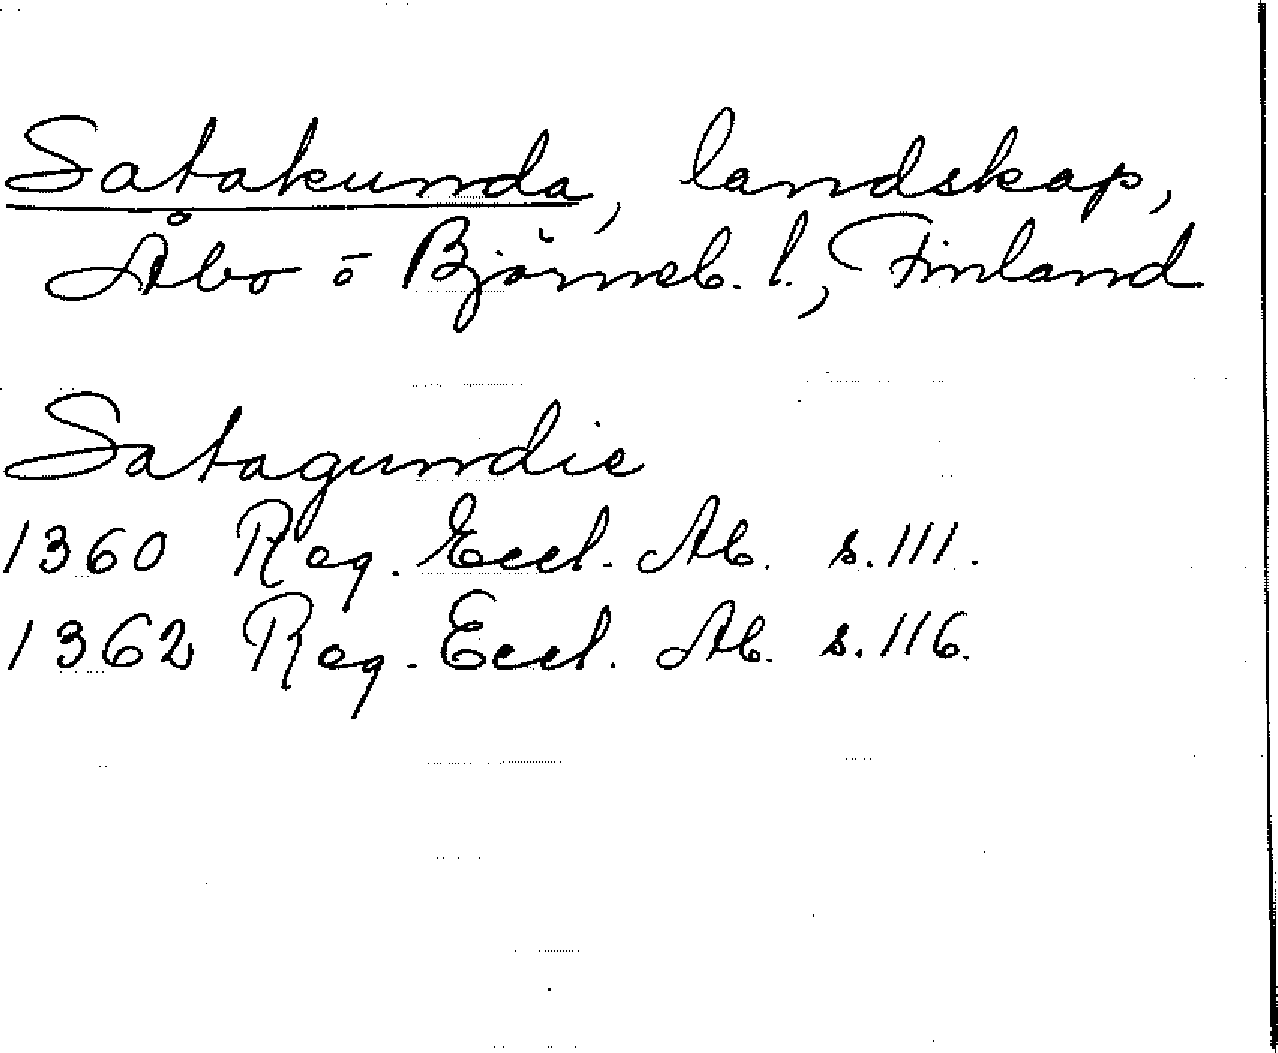 Satakunda, landskap,
Åbo o Björneb. l., Finland
Satagundie
1360 Reg. Eccl. Ab. s. 111.
1362 Reg. Eccl. Ab. s. 116.